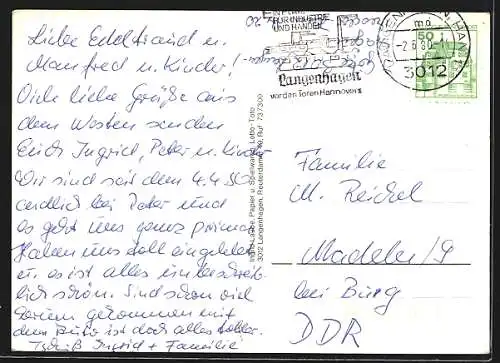 Liebe Edeltraud u.
Manfred u. Kinder!
Viele liebe Grüße aus
dem Westen senden
Euch Ingrid, Peter u. Kinder
Wir sind seit dem 4.4.80
endlich bei Peter und
es geht uns ganz prima
Haben uns toll eingelebt
u. es ist alles unbeschreib-
lich schön. Sind schon viel
herum gekommen mit
dem Auto ist doch alles toller.
Tschüß Ingrid + Familie
FÜR INDUSTRIE
UND HANDEL
Langenhagen
vor den Toren Hannovers
LANGENHAGEN, HAN
md
-2.6.80
3012
50
3012 Langenhagen, Reuterdamm, Ruf 737300
Papier u. Spielwaren, Lotto-Toto
Familie
M. Reichel
Madel 19
bei Burg
DDR